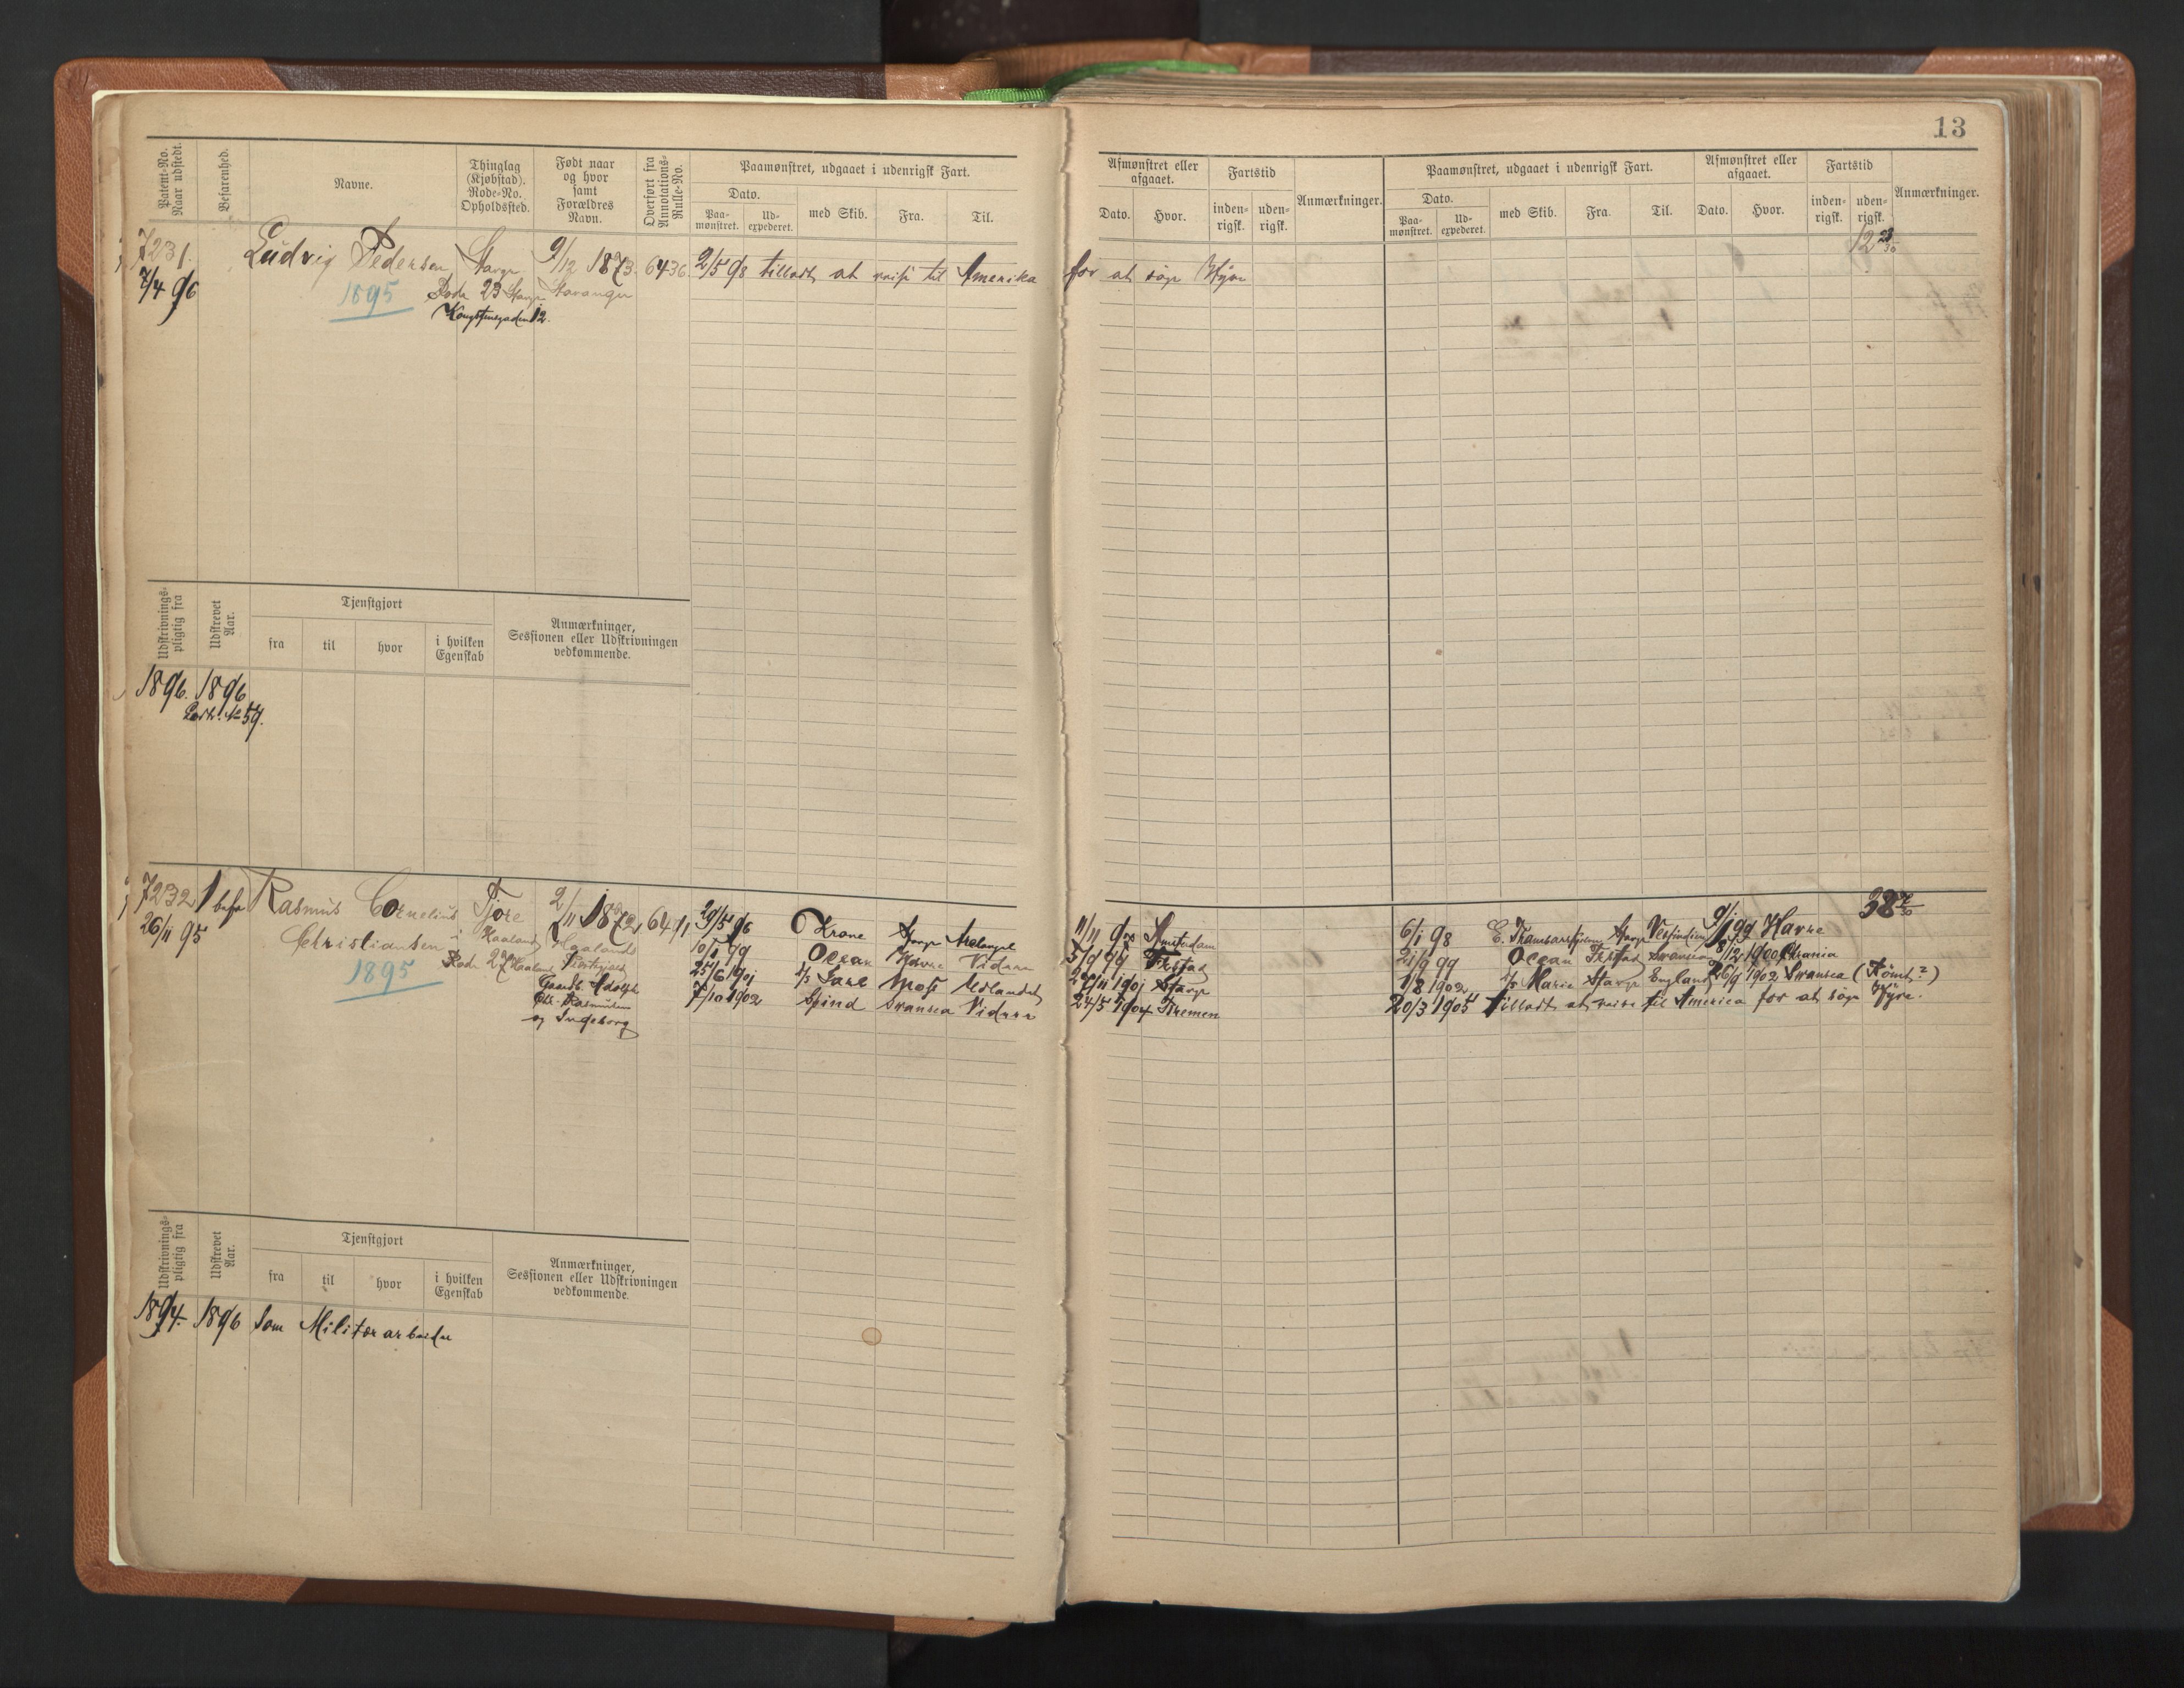 13
Patent-No. Naar udstedt.
Befarenhed.
Navne.
Thinglag (Kjøbstad). Rode-No. Opholdssted.
Født naar og hvor samt Forældres Navn.
Overført fra Annotations-Rulle-No.
Paamønstret, udgaaet i udenrigsk Fart.
Dato.
Paa-mønstret.
Ud-expederet.
med Skib.
Fra.
Til.
Afmønstret eller afgaaet.
Dato.
Hvor.
Fartstid
inden-rigsk.
uden-rigsk.
Anmærkninger.
Paamønstret, udgaaet i udenrigsk Fart.
Dato.
Paa-mønstret.
Ud-expederet.
med Skib.
Fra.
Til.
Afmønstret eller afgaaet.
Dato.
Hvor.
Fartstid
inden-rigsk.
uden-rigsk.
Anmærkninger.
7231. Ludvig Pedersen Stavgr 9/12 1873. 6436. 2/5 98 tilladt at reise til Amerika for at søge Hyre
12 28/30
7/4 96 1895 Rode 23 Stavgr Stavanger
Kongstensgaden 12.
Udskrivnings-pligtig fra
Udskrevet Aar.
Tjenstgjort
fra
til
hvor
i hvilken Egenskab
Anmærkninger, Sessionen eller Udskrivningen vedkommende.
1896. 1896
No 59.
7232 1 befr Rasmus Cornelius Tjore 2/11 1872 6471
26/11 95 Christiansen i Haaland Haalands
1895 Rode 27 Haaland Præstegjeld
Gaardb. Adolph
Chr. Rasmussen
og Ingeborg
29/5 96 Krone Stavgr Archangel 11/11 Amsterdam
99 Ocean Havre Vidre Fr.stad
25/6 1901 s/s Jarl Moss Udlandet 1901 Stavgr
7/10 1902 Spind Swansea Videre 24/5 1904 Bremen
38
6/1 98 Stavgr Vestindien 9/1 99 Havre
21/9 99 Ocean Fr.stad Swansea 8/12 1900 Chrania
1/8 1902 s/s Marie Stavgr England 26/9 1902 Swansea (Rømt?)
20/3 1905 tilladt at reise til America for at søge Hyre.
Udskrivnings-pligtig fra
Udskrevet Aar.
Tjenstgjort
fra
til
hvor
i hvilken Egenskab
Anmærkninger, Sessionen eller Udskrivningen vedkommende.
1894. 1896 som Militærarbeider